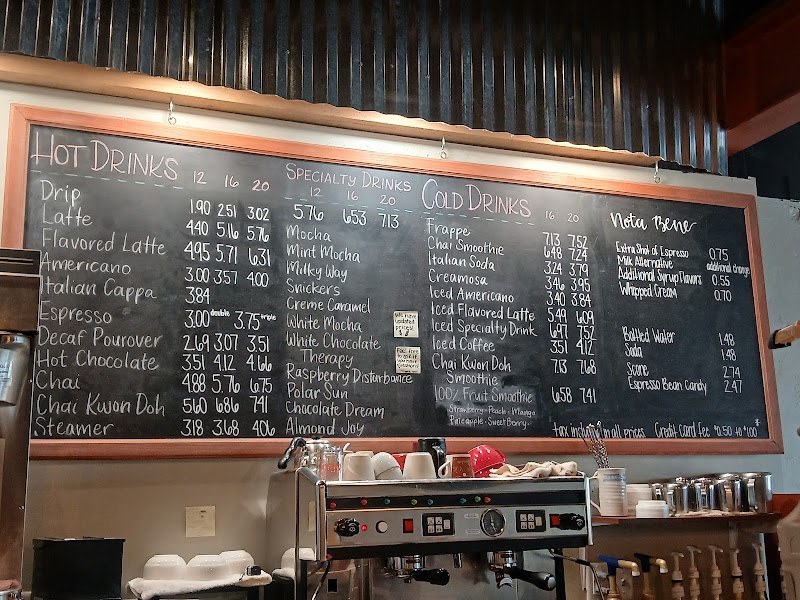 HOT DRINKS 12 16 20
Drip 1.90 2.51 3.02
Latte 4.40 5.16 5.76
Flavored Latte 4.95 5.71 6.31
Americano 3.00 3.57 4.00
Italian Cappa 3.84
Espresso 3.00 double 3.75 triple
Decaf Pourover 2.69 3.07 3.51
Hot Chocolate 3.51 4.12 4.66
Chai 4.88 5.76 6.75
Chai Kwon Doh 5.60 6.86 7.41
Steamer 3.18 3.68 4.06
SPECIALTY DRINKS
12 16 20
5.76 6.53 7.13
Mocha
Mint Mocha
Milky Way
Snickers
Creme Caramel
White Mocha
White Chocolate
Therapy
Raspberry Disturbance
Polar Sun
Chocolate Dream
Almond Joy
we have
updated
prices!
Feel free
to ask
COLD DRINKS 16 20
Frappe 7.13 7.52
Chai Smoothie 6.48 7.24
Italian Soda 3.24 3.79
Creamosa 3.46 3.95
Iced Americano 3.40 3.84
Iced Flavored Latte 5.49 6.09
Iced Specialty Drink 6.97 7.52
Iced Coffee 3.51 4.12
Chai Kwon Doh 7.13 7.68
Smoothie
100% Fruit Smoothie 6.58 7.41
Strawberry - Peach - Mango
Pineapple - Sweet Berry -
Nota Bene
Extra Shot of Espresso 0.75
Milk Alternative additional charge
Additional Syrup Flavors 0.55
Whipped Cream 0.70
Bottled Water 1.48
Soda 1.48
Scone 2.74
Espresso Bean Candy 2.47
tax included in all prices Credit card fee $0.50 to $1.00